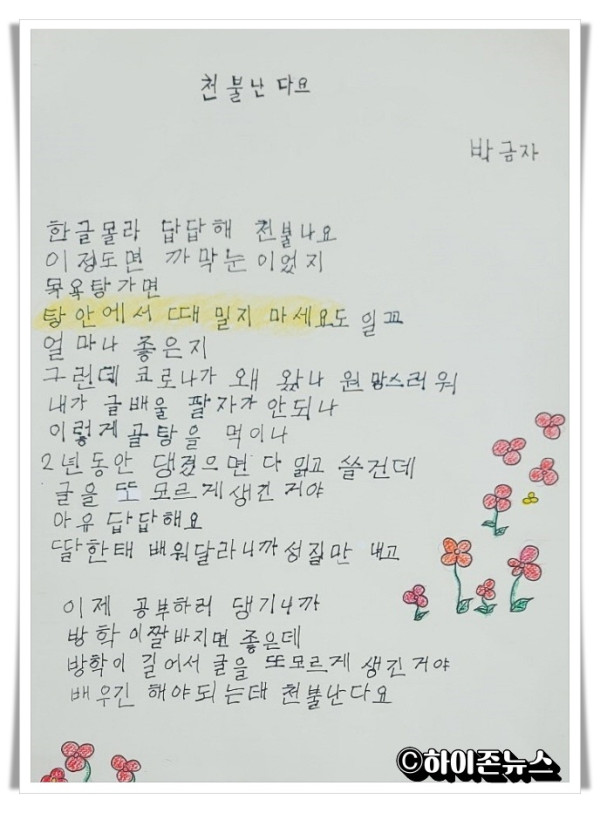 천불난다요
박금자
한글몰라 답답해 천불나요
이정도면 까막눈이었지
목욕탕가면
탕안에서 때 밀지 마세요도 일꼬
얼마나 좋은지
그런데 코로나가 왜 왔나 원망스러워
내가 글배울 팔자가 안되나
이렇게 골탕을 먹이나
2년동안 댕겼으면 다 읽고 쓸건데
글을 또 모르게생긴거야
아유 답답해요
딸한태 배워달라니까 성질만 내고
이제 공부하러 댕기니까
방학이짤바지면 좋은데
방학이 길어서 글을 또모르게 생긴거야
배우긴 해야되는대 천불난다요
©하이존뉴스